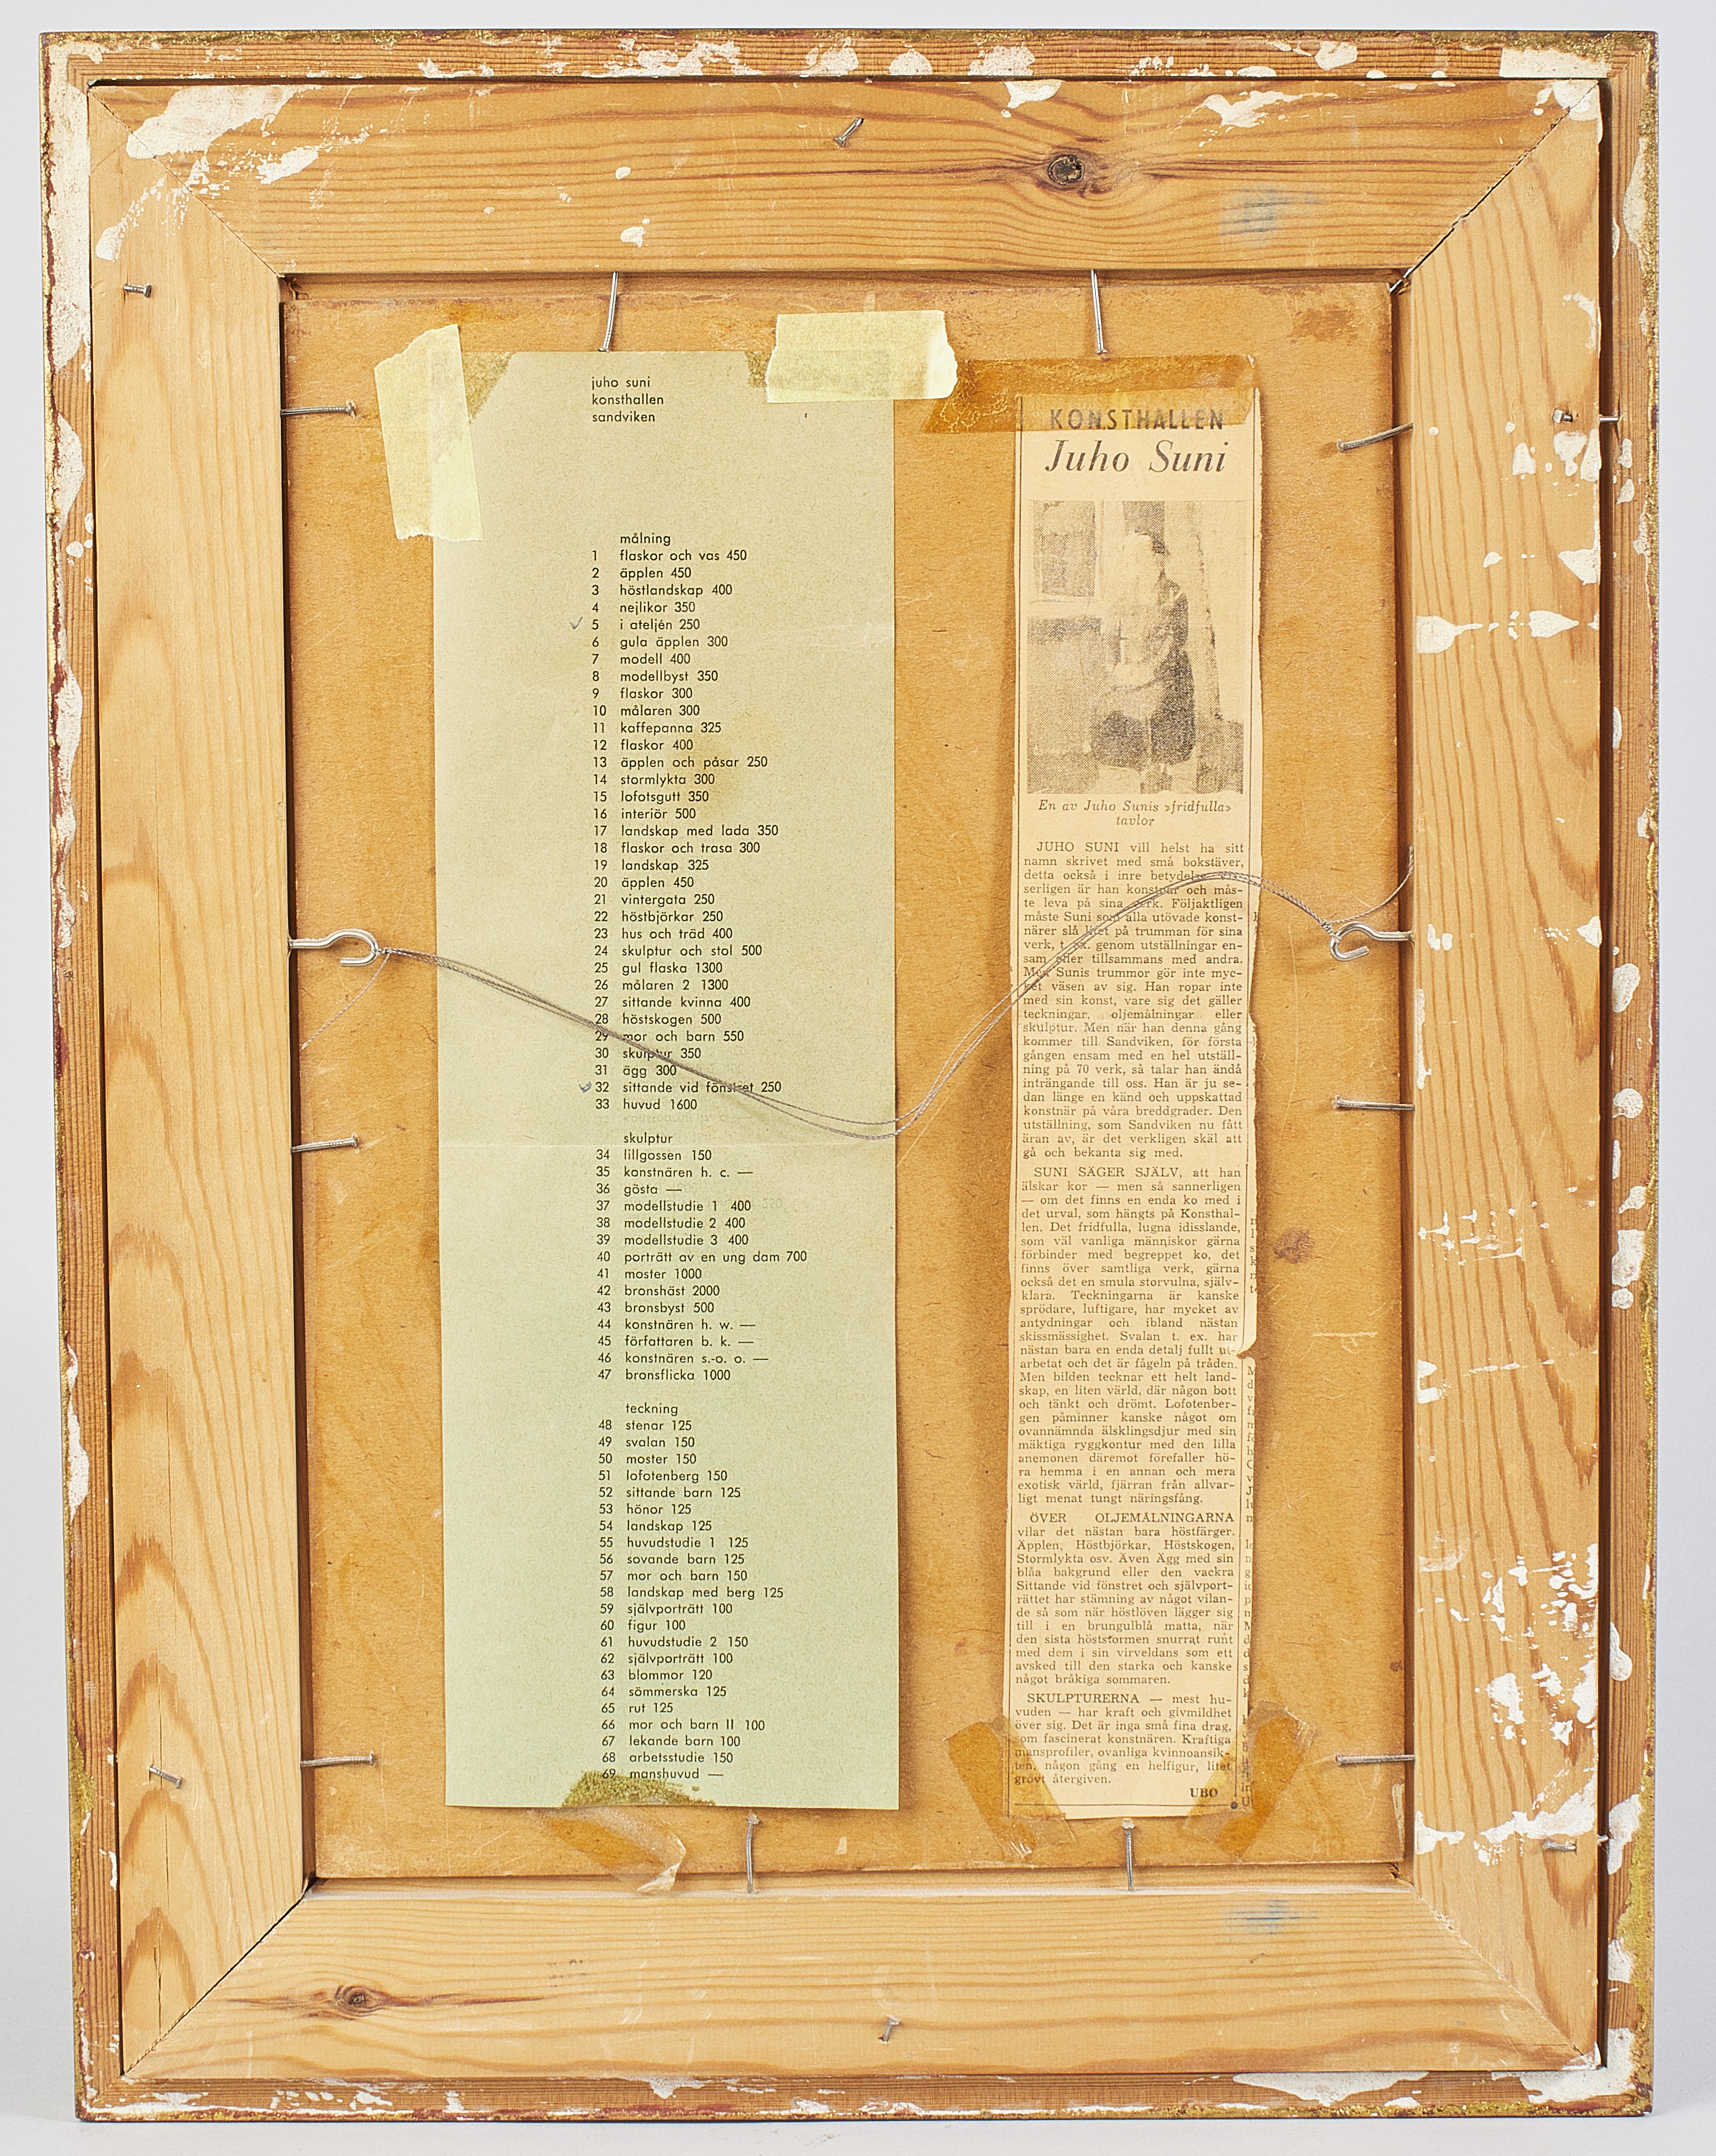 juho suni
konsthallen
sandviken
målning
1 flaskor och vas 450
2 äpplen 450
3 höstlandskap 400
4 nejlikor 350
5 i ateljén 250
6 gula äpplen 300
7 modell 400
8 modellbyst 350
9 flaskor 300
10 målaren 300
11 kaffepanna 325
12 flaskor 400
13 äpplen och påsar 250
14 stormlykta 300
15 lofotsgutt 350
16 interiör 500
17 landskap med lada 350
18 flaskor och trasa 300
19 landskap 325
20 äpplen 450
21 vintergata 250
22 höstbjörkar 250
23 hus och träd 400
24 skulptur och stol 500
25 gul flaska 1300
26 målaren 2 1300
27 sittande kvinna 400
28 höstskogen 500
29 mor och barn 550
30 skulptur 350
31 ägg 300
32 sittande vid fönstret 250
33 huvud 1600
skulptur
34 lillgossen 150
35 konstnären h. c. —
36 gösta —
37 modellstudie 1 400
38 modellstudie 2 400
39 modellstudie 3 400
40 porträtt av en ung dam 700
41 moster 1000
42 bronshäst 2000
43 bronsbyst 500
44 konstnären h. w. —
45 författaren b. k. —
46 konstnären s.-o. o. —
47 bronsflicka 1000
teckning
48 stenar 125
49 svalan 150
50 moster 150
51 lofotenberg 150
52 sittande barn 125
53 hönor 125
54 landskap 125
55 huvudstudie 1 125
56 sovande barn 125
57 mor och barn 150
58 landskap med berg 125
59 självporträtt 100
60 figur 100
61 huvudstudie 2 150
62 självporträtt 100
63 blommor 120
64 sömmerska 125
65 rut 125
66 mor och barn II 100
67 lekande barn 100
68 arbetsstudie 150
69 manshuvud —
KONSTHALLEN
Juho Suni
En av Juho Sunis »fridfulla»
tavlor
JUHO SUNI vill helst ha sitt
namn skrivet med små bokstäver,
detta också i inre
serligen är han konstnär och mås-
te leva på sina verk. Följaktligen
måste Suni som alla utövade konst-
närer slå litet på trumman för sina
verk, t. ex. genom utställningar en-
sam eller tillsammans med andra.
Men Sunis trummor gör inte myc-
ket väsen av sig. Han ropar inte
med sin konst, vare sig det gäller
teckningar, oljemålningar eller
skulptur. Men när han denna gång
kommer till Sandviken, för första
gången ensam med en hel utställ-
ning på 70 verk, så talar han ändå
inträngande till oss. Han är ju se-
dan länge en känd och uppskattad
konstnär på våra breddgrader. Den
utställning, som Sandviken nu fått
äran av, är det verkligen skäl att
gå och bekanta sig med.
SUNI SÄGER SJÄLV, att han
älskar kor — men så sannerligen
— om det finns en enda ko med i
det urval, som hängts på Konsthal-
len. Det fridfulla, lugna idisslande,
som väl vanliga människor gärna
förbinder med begreppet ko, det
finns över samtliga verk, gärna
också det en smula storvulna, själv-
klara. Teckningarna är kanske
sprödare, luftigare, har mycket av
antydningar och ibland nästan
skissmässighet. Svalan t. ex. har
nästan bara en enda detalj fullt ut-
arbetat och det är fågeln på tråden.
Men bilden tecknar ett helt land-
skap, en liten värld, där någon bott
och tänkt och drömt. Lofotenber-
gen påminner kanske något om
ovannämnda älsklingsdjur med sin
mäktiga ryggkontur med den lilla
anemonen däremot förefaller hö-
ra hemma i en annan och mera
exotisk värld, fjärran från allvar-
ligt menat tungt näringsfång.
ÖVER OLJEMÅLNINGARNA
vilar det nästan bara höstfärger.
Äpplen, Höstbjörkar, Höstskogen,
Stormlykta osv. Även Ägg med sin
blåa bakgrund eller den vackra
Sittande vid fönstret och självport-
rättet har stämning av något vilan-
de så som när höstlöven lägger sig
till i en brungulblå matta, när
den sista höststormen snurrat runt
med dem i sin virveldans som ett
avsked till den starka och kanske
något bråkiga sommaren.
SKULPTURERNA — mest hu-
vuden — har kraft och givmildhet
över sig. Det är inga små fina drag,
som fascinerat konstnären. Kraftiga
mansprofiler, ovanliga kvinnoansik-
ten, någon gång en helfigur, litet
grovt återgiven.
UBO